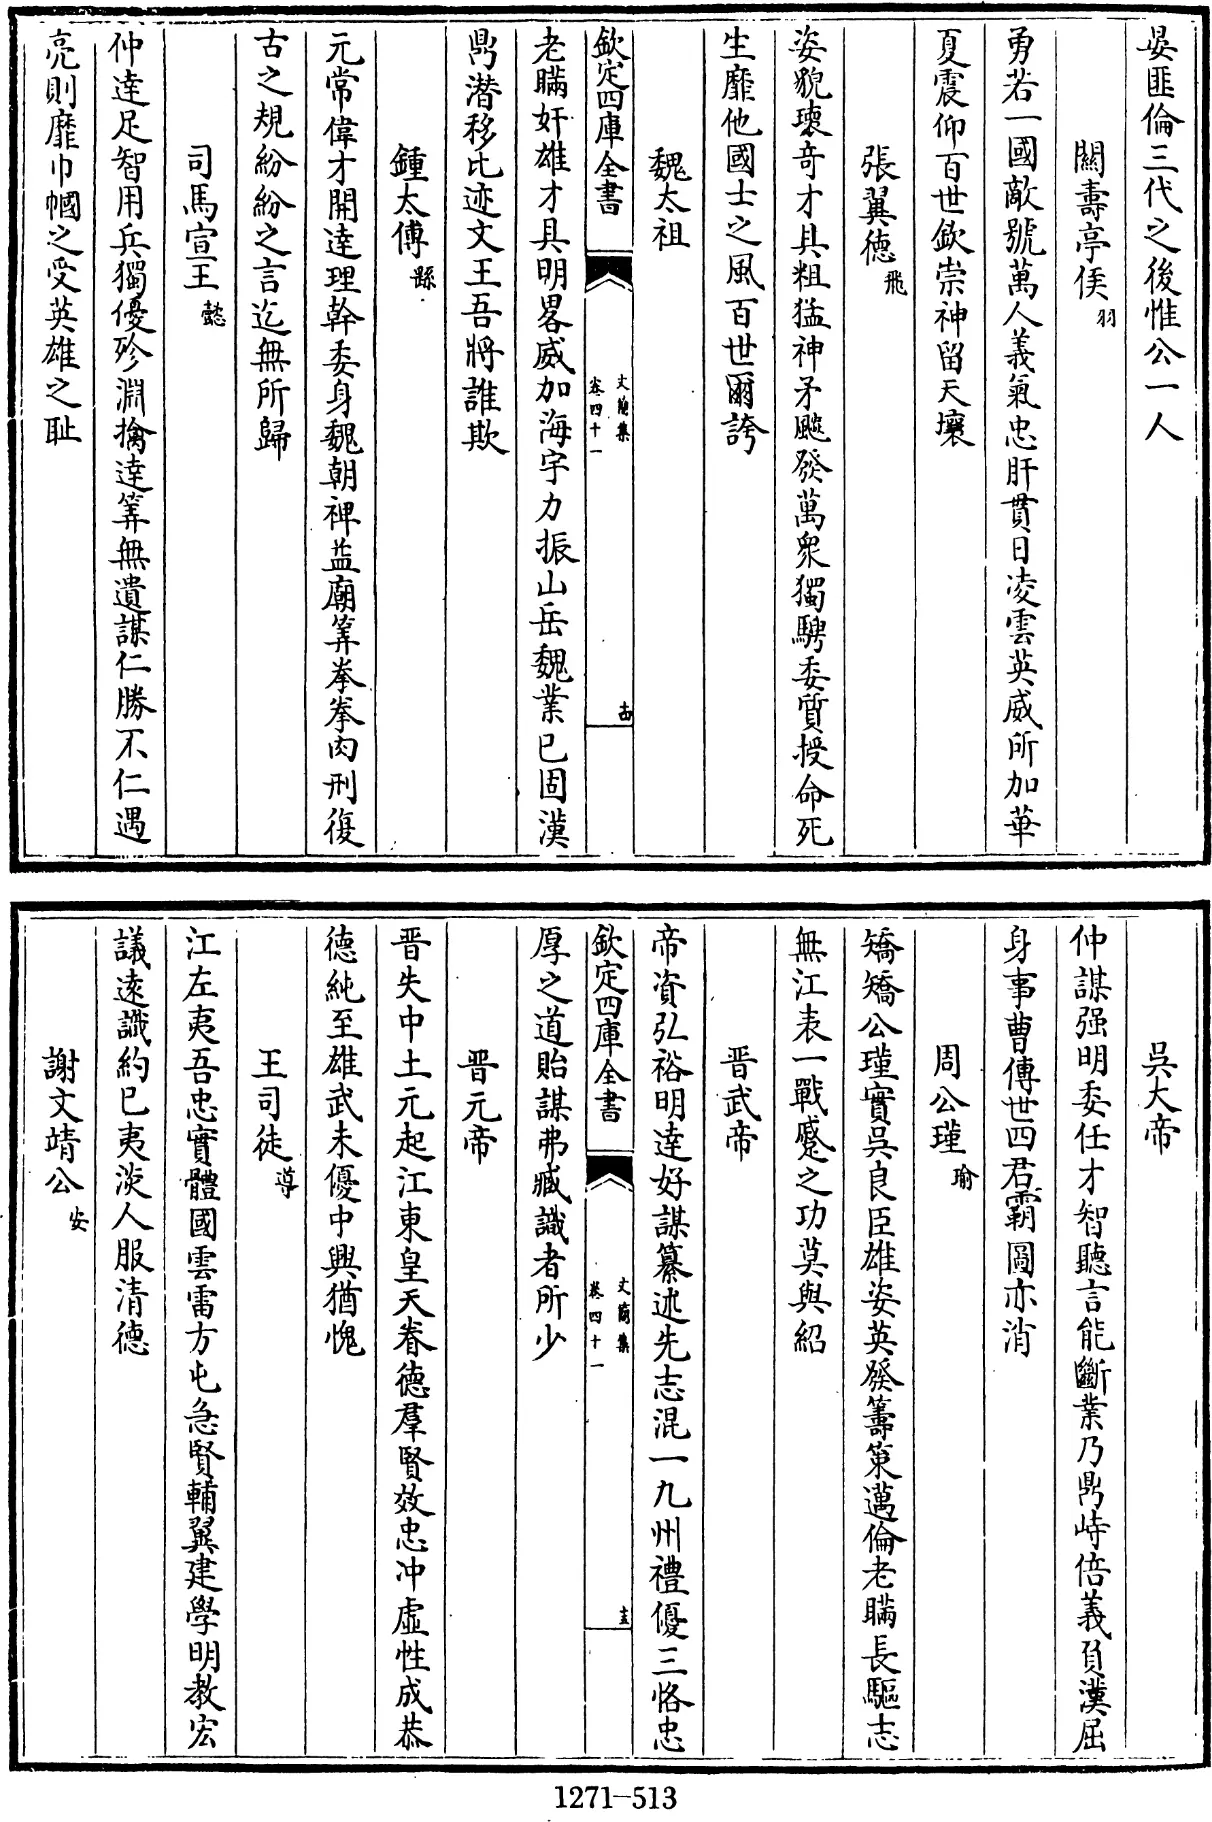 晏匪倫三代之後惟公一人
關壽亭侯羽
勇若一國敵號萬人義氣忠肝貫日凌雲英威所加華
夏震仰百世欽崇神留天壤
張翼德飛
姿貌瓌奇才具粗猛神矛颷發萬衆獨騁委質授命死
生靡他國士之風百世爾誇
魏太祖
欽定四庫全書
文簡集
卷四十一
古
老瞞奸雄才具明畧威加海宇力振山岳魏業已固漢
鼎潜移比迹文王吾將誰欺
鍾太傅繇
元常偉才開達理幹委身魏朝裨益廟筭拳拳肉刑復
古之規紛紛之言迄無所歸
司馬宣王懿
仲達足智用兵獨優殄淵擒達筭無遺謀仁勝不仁遇
亮則靡巾幗之受英雄之恥
吳大帝
仲謀强明委任才智聽言能斷業乃鼎峙倍義負漢屈
身事曹傳世四君霸圖亦消
周公瑾瑜
矯矯公瑾實吳良臣雄姿英發籌策邁倫老瞞長驅志
無江表一戰蹙之功莫與紹
晋武帝
帝資弘裕明達好謀纂述先志混一九州禮優三恪忠
欽定四庫全書
文簡集
卷四十一
主
厚之道貽謀弗臧識者所少
晋元帝
晋失中土元起江東皇天眷德羣賢效忠冲虛性成恭
德純至雄武未優中興猶愧
王司徒導
江左夷吾忠實體國雲雷方屯急賢輔翼建學明教宏
議遠識約已夷淡人服清德
謝文靖公安
1271-513